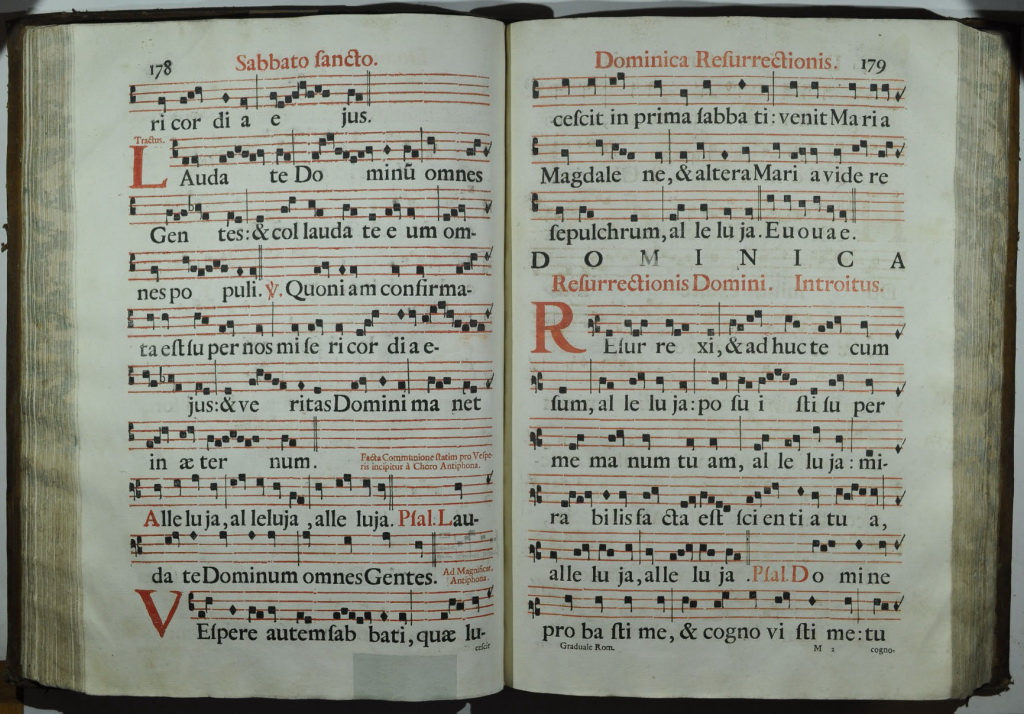 178 Sabbato ſancto.
ri cor di a e jus.
Tractus.
L Auda te Do minū omnes
Gen tes: & col lauda te e um om-
nes po puli. ℣. Quoni am confirma-
ta eſt ſu per nos mi ſe ri cor di a e-
jus: & ve ritas Domini ma net
in æ ter num.
Facta Communione ſtatim pro Veſpe-
ris incipitur à Choro Antiphona.
Alle lu ja, al leluja, alle luja. Pſal. Lau-
da te Dominum omnes Gentes.
Ad Magnificat.
Antiphona.
V Eſpere autem ſab bati, quæ lu-
ceſcit
Dominica Reſurrectionis. 179
ceſcit in prima ſabba ti: venit Ma ri a
Magdale ne, & altera Mari a vide re
ſepulchrum, al le lu ja. Euouae.
D O M I N I C A
Reſurrectionis Domini. Introitus.
R Eſur re xi, & ad huc te cum
ſum, al le lu ja: po ſu i ſti ſu per
me ma num tu am, al le lu ja: mi-
ra bi lis fa cta eſt ſci en ti a tu a,
alle lu ja, alle lu ja. Pſal. Do mi ne
pro ba ſti me, & cogno vi ſti me: tu
Graduale Rom. M 2 cogno-